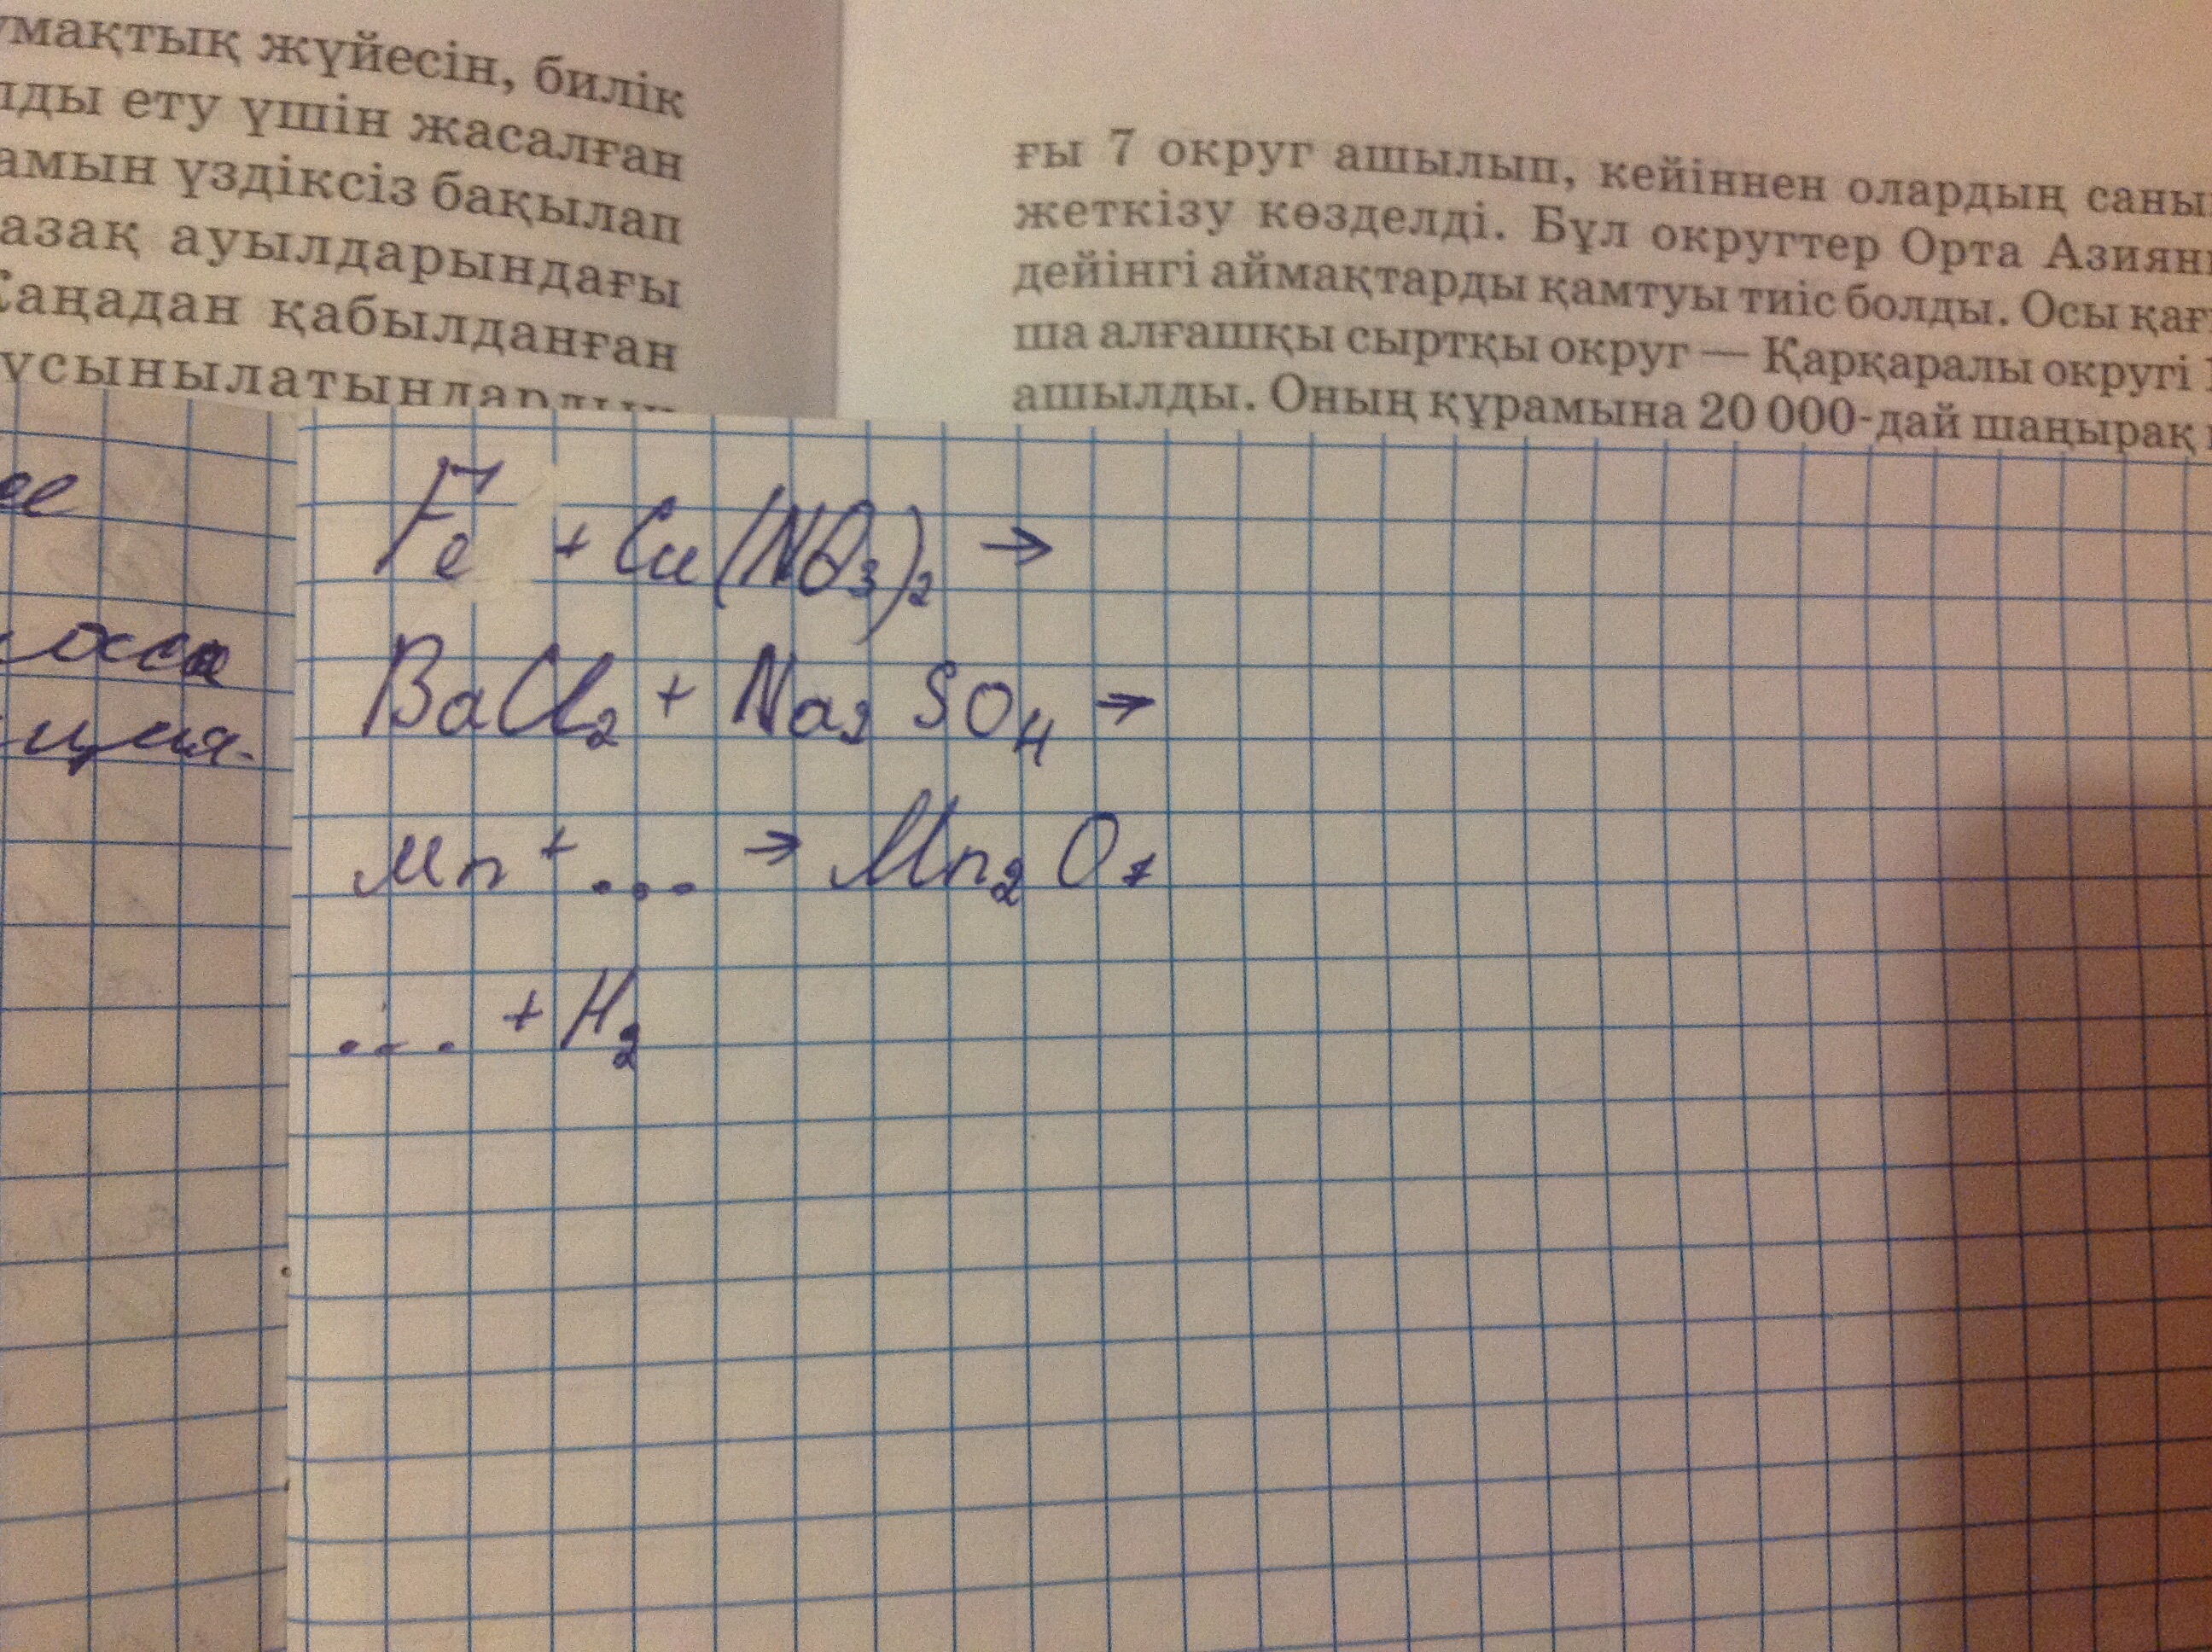 жүйесін, билік
ету үшін жасалған
үздіксіз бақылап
ауылдарындағы
қабылданған
ғы 7 округ ашылып, кейіннен олардың
жеткізу көзделді. Бұл округтер Орта
дейінгі аймақтарды қамтуы тиіс болды. Осы
ша алғашқы сыртқы округ — Қарқаралы округі
ашылды. Оның құрамына 20 000-дай шаңырақ
Fe + Cu(NO₃)₂ →
BaCl₂ + Na₂SO₄ →
Mn + ... → Mn₂O₇
... + H₂